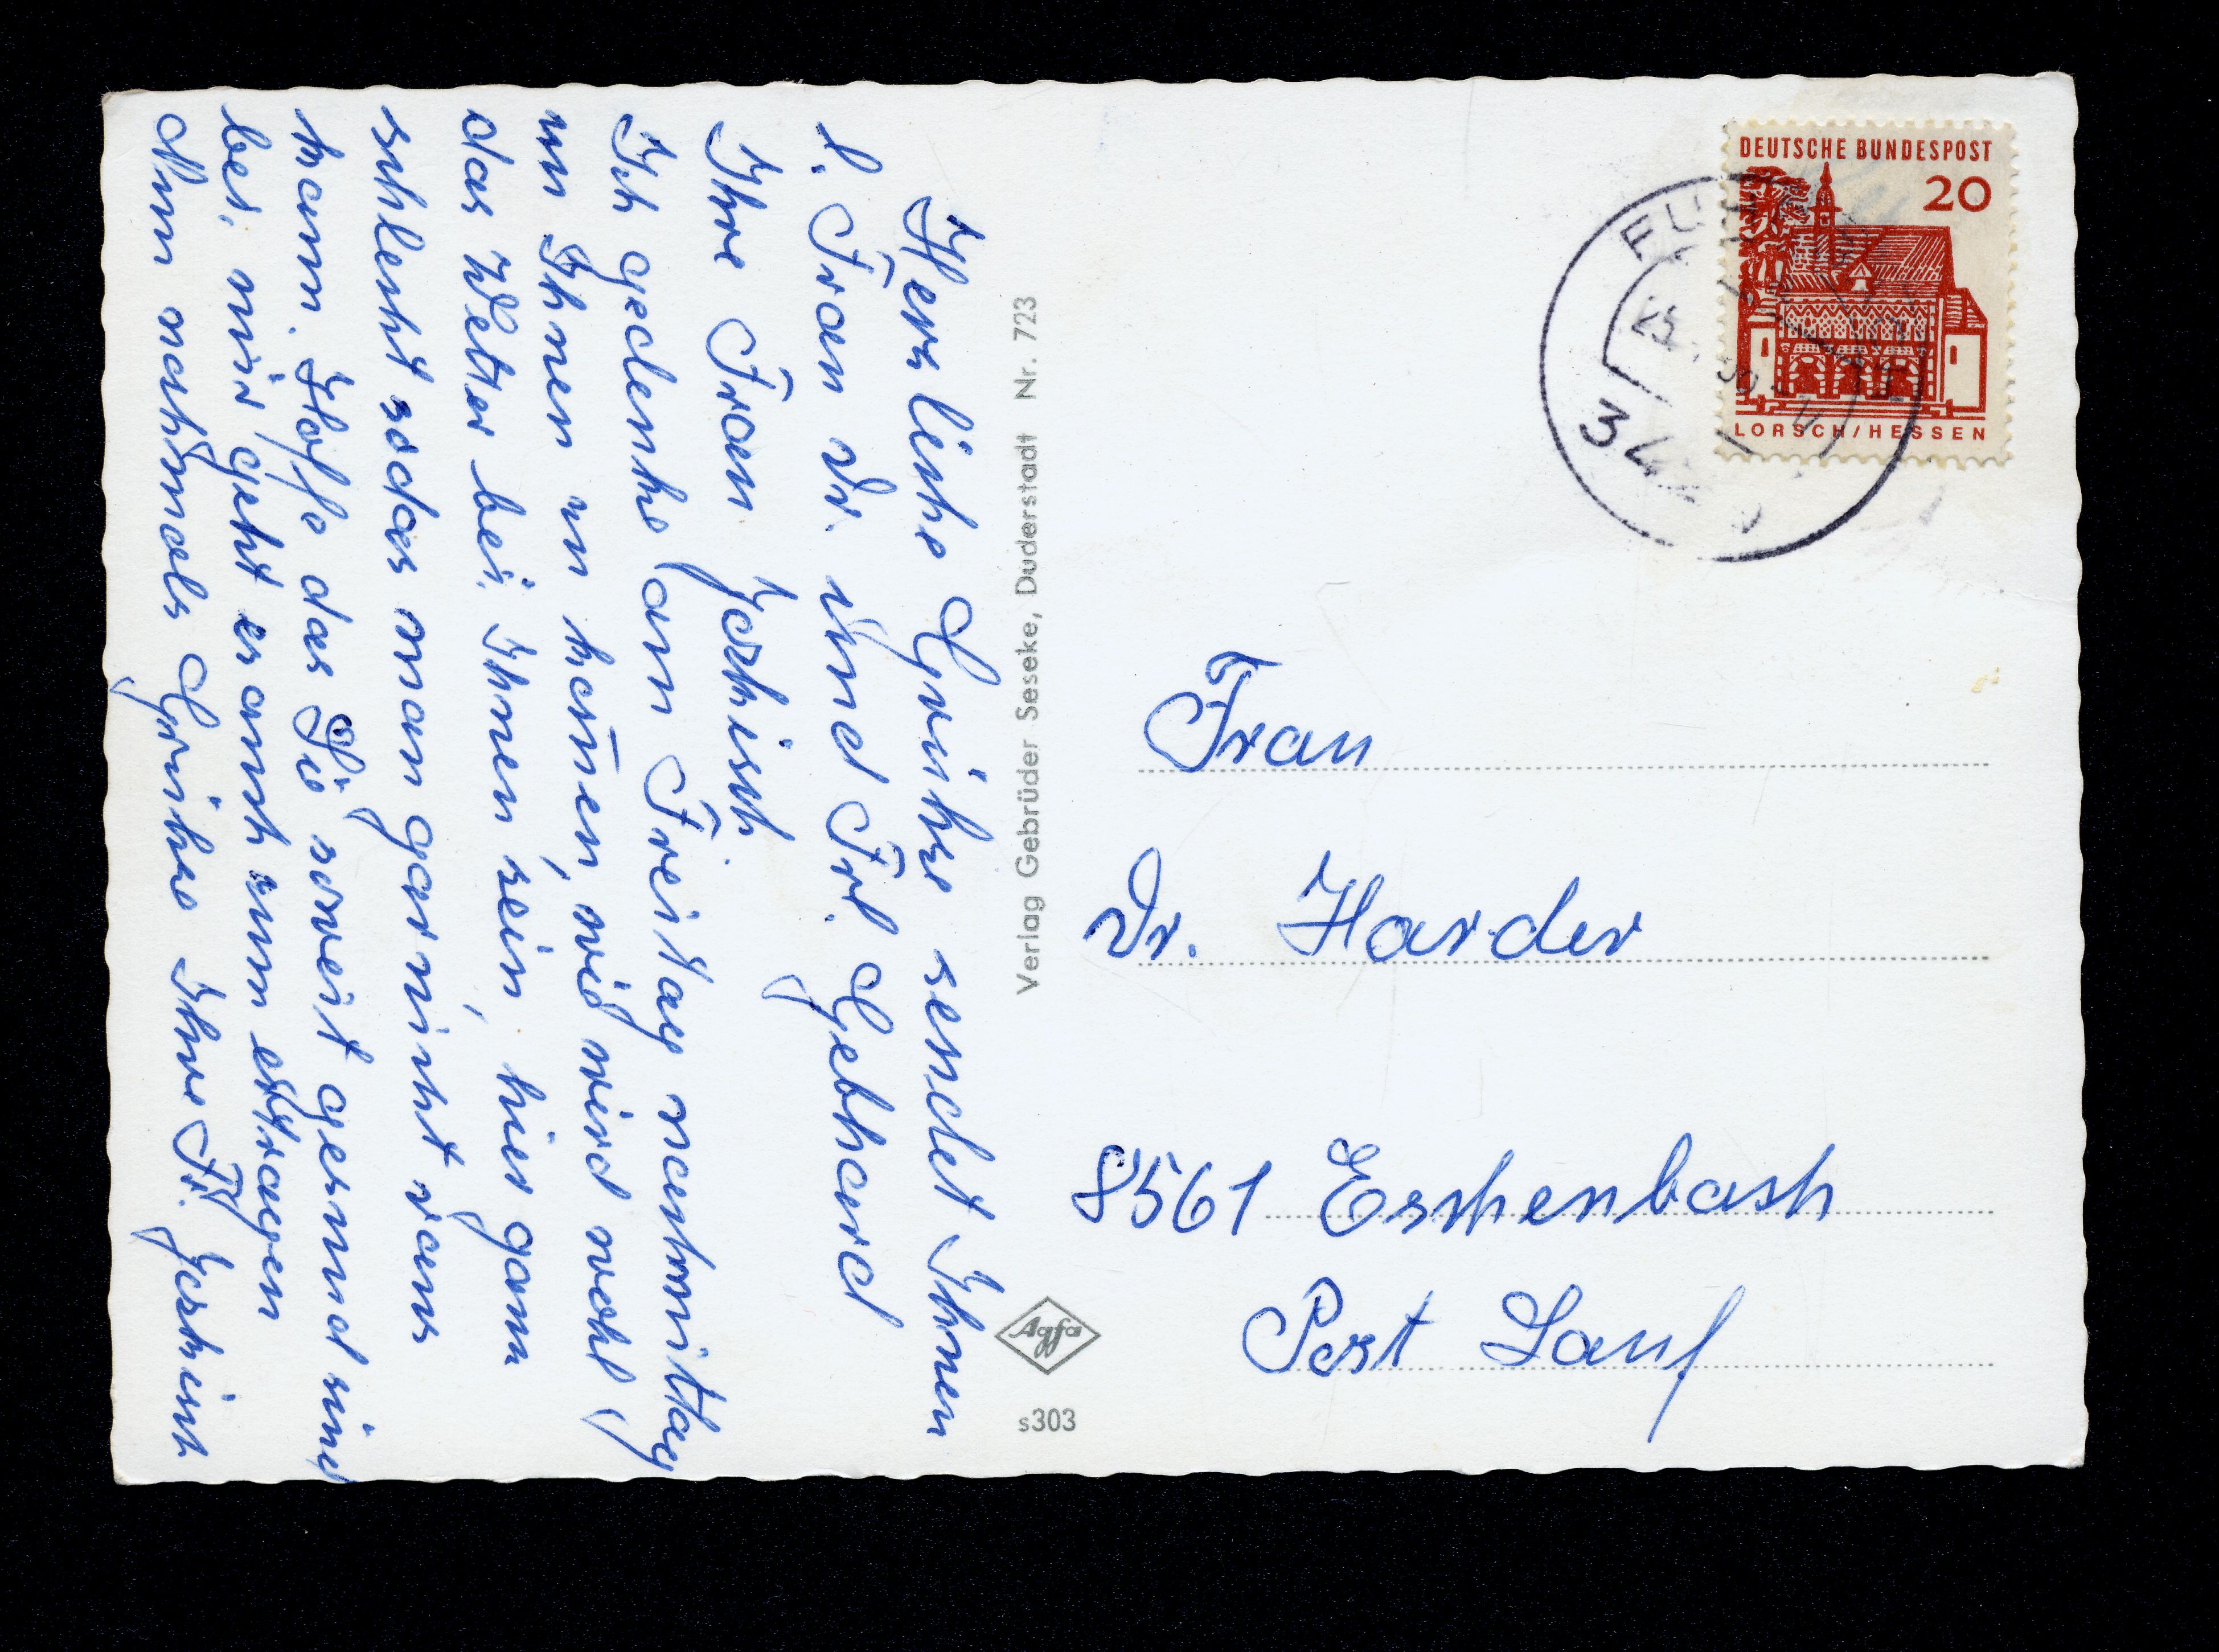 Herzliche Grüße sendet Ihnen
l. Frau Dr. und Frl. Gebhard
Ihre Frau
Ich gedenke am Freitag nachmittag
zu Ihnen zu komen, wie wird wohl
das Wetter bei Ihnen sein, hier ganz
schlecht sodas man garnicht raus
kann. Hoffe das Sie soweit gesund sind
bei mir geht es auch zum ertragen
Nun nochmals Grüße Ihre Fr.
Verlag Gebrüder Seseke, Duderstadt Nr. 723
Agfa
s303
DEUTSCHE BUNDESPOST
20
LORSCH/HESSEN
Frau
Dr. Harder
8561 Eschenbach
Post Lauf